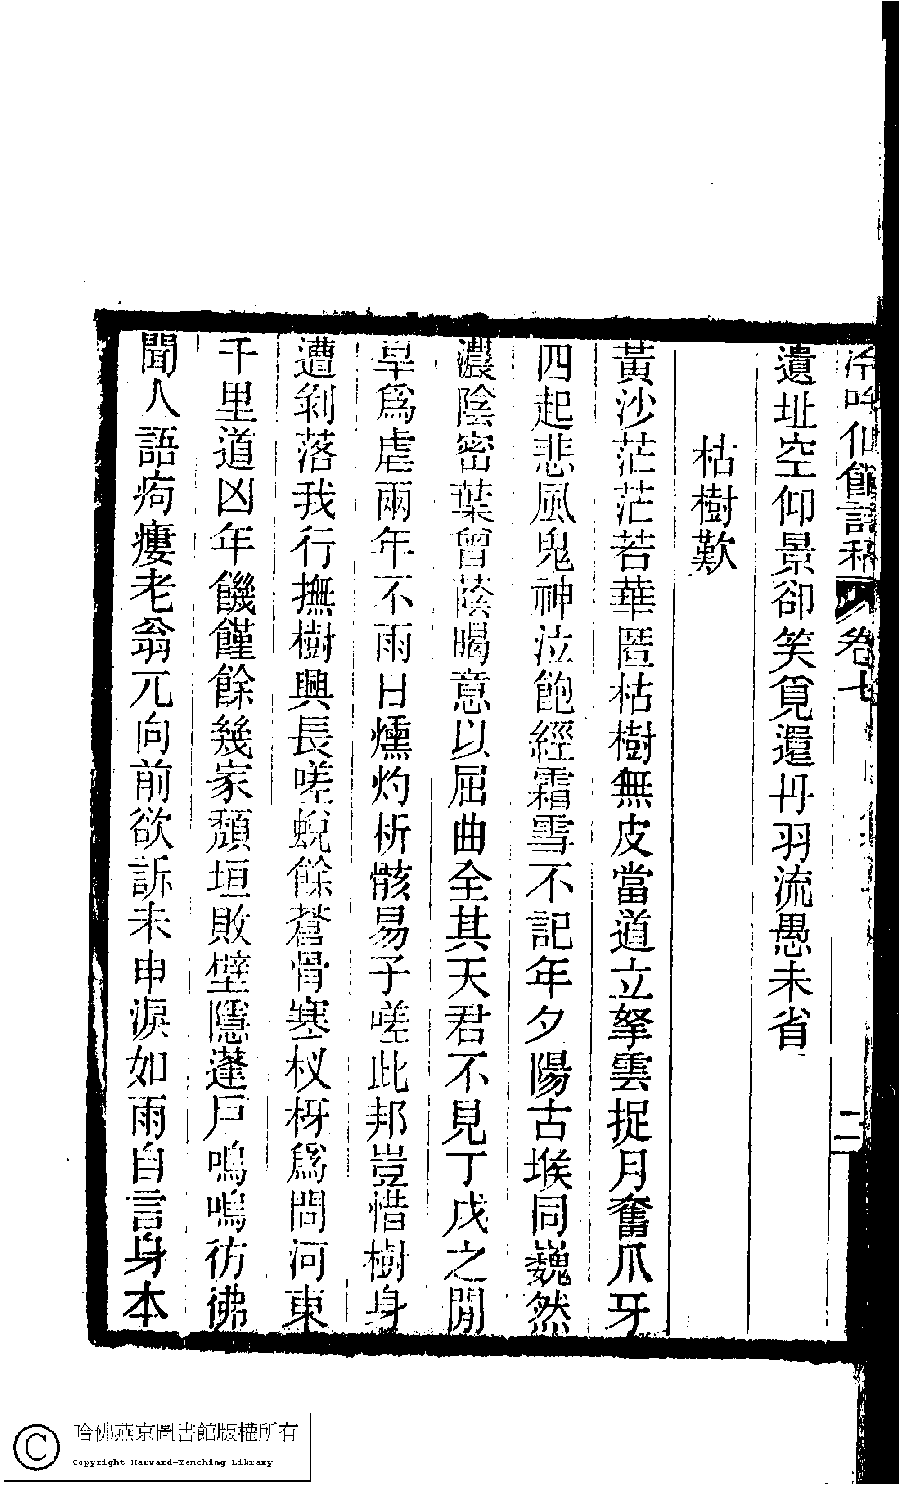 冷吟仙館詩稿 卷七 二
遺址空仰景卻笑覓還丹羽流愚未省
枯樹歎
黃沙茫茫若華匿枯樹無皮當道立拏雲捉月奮爪牙
四起悲風鬼神泣飽經霜雪不記年夕陽古堠同巍然
濃陰密葉曾蔭暍意以屈曲全其天君不見丁戊之閒
旱爲虐兩年不雨日燻灼析骸易子嗟此邦豈惜樹身
遭剝落我行撫樹興長嗟蛻餘蒼骨塞杈枒爲問河東
千里道凶年饑饉餘幾家頹垣敗壁隱蓬戶嗚嗚彷彿
聞人語痀瘻老翁兀向前欲訴未申淚如雨自言身本
哈佛燕京圖書館版權所有
Copyright Harvard-Yenching Library